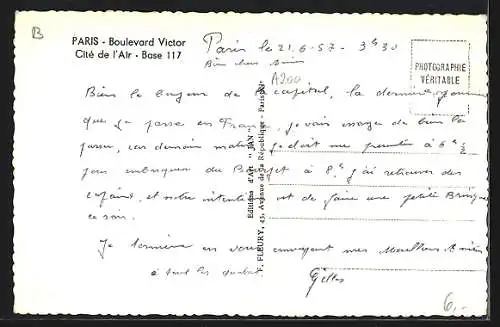 B
PARIS - Boulevard Victor
Cité de l'Air - Base 117
Paris le 21.6.57 - 3h30
Bien chers amis
A200
PHOTOGRAPHIE
VÉRITABLE
Bien le bonjour de la capitale, la dernière journée
que je passe en France, je vais essayer de bien la
passer, car demain matin je dois me présenter à 6h
pour embarquer du Bourget à 8h j'ai retrouvé des
copains, et notre intention est de faire une petite
ce soir.
Je termine en vous envoyant mes Meilleurs Amitiés
à tout les
Gilles
6,-
Editions d'Art "JAN"
F. FLEURY, 43, Avenue de la République - Paris